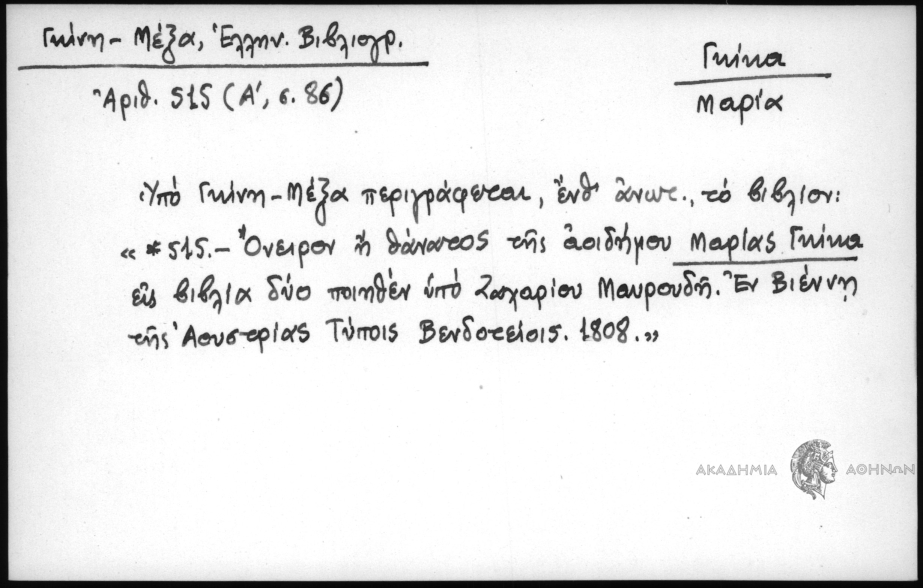 Γκίνη – Μέξα, Ἑλλην. Βιβλιογρ.
Ἀριθ. 515 (Α', σ. 86)
Γκίκα
Μαρία
Ὑπό Γκίνη – Μέξα περιγράφεται, ἔνθ' ἄνωτ., τό βιβλίον:
« *515. – Ὄνειρον ἤ θάνατος τῆς ἀοιδήμου Μαρίας Γκίκα
εἰς βιβλία δύο ποιηθέν ὑπό Ζαχαρίου Μαυρουδῆ. Ἐν Βιέννῃ
τῆς Ἀουστρίας Τύποις Βενδοτείοις. 1808.»
ΑΚΑΔΗΜΙΑ ΑΘΗΝΩΝ